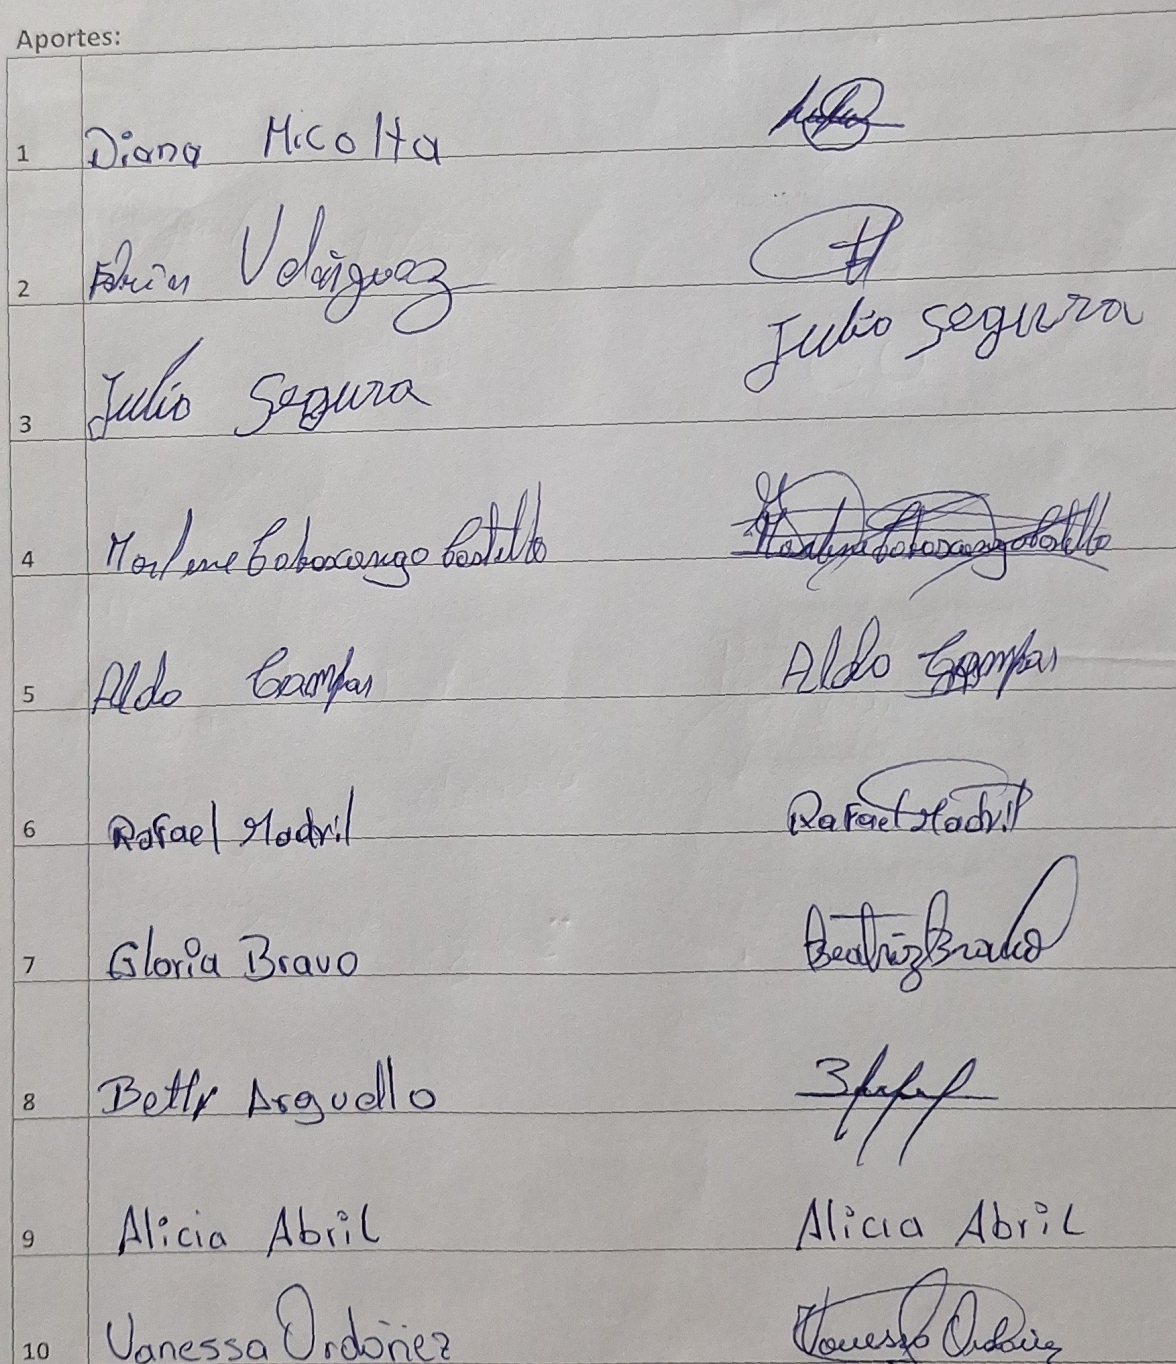 Aportes:
1 Diana Micolta
2 Velázquez
3 Julio Segura Julio Segura
4 Marlene Cabascango Castillo Marlene Cabascango Castillo
5 Aldo Campas Aldo Campas
6 Rafael Madril Rafael Madril
7 Gloria Bravo Beatriz Bravo
8 Betty Arguello
9 Alicia Abril Alicia Abril
10 Vanessa Ordóñez Vanessa Ordóñez